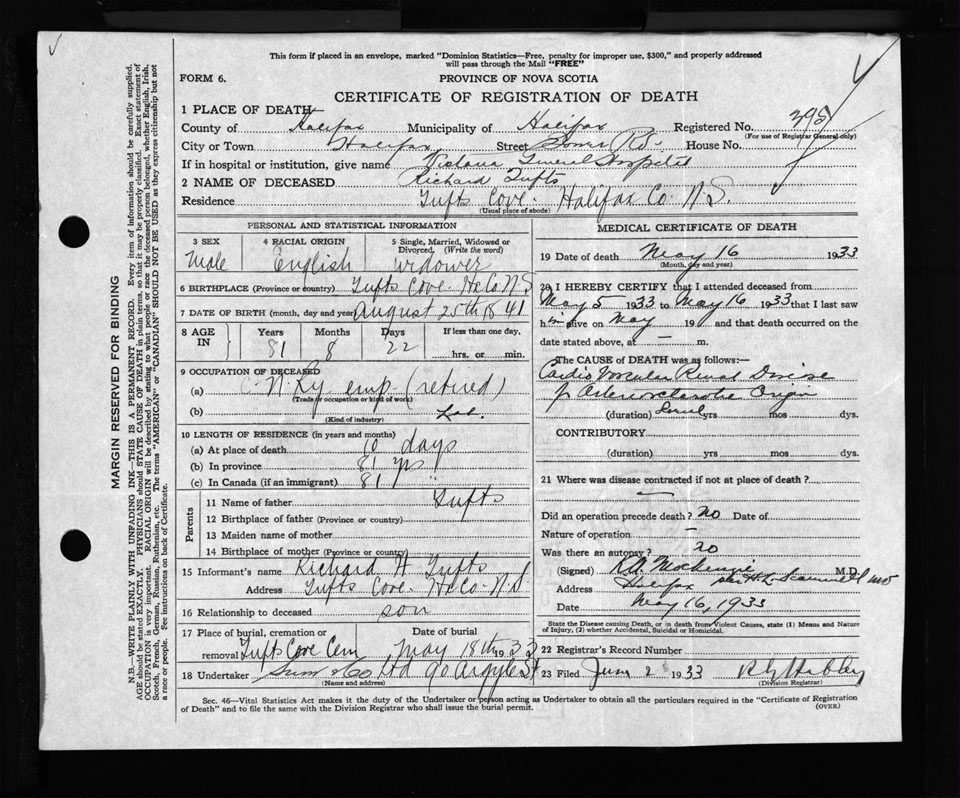 This form if placed in an envelope, marked "Dominion Statistics—Free, penalty for improper use, $300," and properly addressed
will pass through the Mail "FREE"
FORM 6. PROVINCE OF NOVA SCOTIA
CERTIFICATE OF REGISTRATION OF DEATH
1 PLACE OF DEATH
County of Halifax Municipality of Halifax Registered No.
(For use of Registrar General only)
City or Town Halifax Street Rd. House No.
If in hospital or institution, give name Victoria General Hospital
2 NAME OF DECEASED Richard Tufts
Residence Tufts Cove. Halifax Co. N.S.
(Usual place of abode)
PERSONAL AND STATISTICAL INFORMATION
3 SEX 4 RACIAL ORIGIN 5 Single, Married, Widowed or Divorced. (Write the word)
Male English widower
6 BIRTHPLACE (Province or country) Tufts Cove. Hx Co N.S
7 DATE OF BIRTH (month, day and year) August 25th 1841
8 AGE IN Years Months Days If less than one day,
81 8 22 hrs. or min.
9 OCCUPATION OF DECEASED
(a) C.N.Ry emp. (retired)
(Trade or occupation or kind of work)
(b) Lab.
(Kind of industry)
10 LENGTH OF RESIDENCE (in years and months)
(a) At place of death 10 days
(b) In province 81 yrs
(c) In Canada (if an immigrant) 81 "
Parents
11 Name of father Tufts
12 Birthplace of father (Province or country)
13 Maiden name of mother
14 Birthplace of mother (Province or country)
15 Informant's name Richard H. Tufts
Address Tufts Cove. Hx Co. N.S
16 Relationship to deceased son
17 Place of burial, cremation or removal Tufts Cove Cem Date of burial May 18th 1933
18 Undertaker Snow & Co Ltd 90 Argyle St
(Name and address)
MEDICAL CERTIFICATE OF DEATH
19 Date of death May 16 1933
(Month, day and year)
20 I HEREBY CERTIFY that I attended deceased from
May 5 1933 to May 16 1933 that I last saw
him alive on May 19 and that death occurred on the
date stated above, at — m.
The CAUSE OF DEATH was as follows:—
Cardio Vascular Renal Disease
of Arteriosclerotic Origin
(duration) Several yrs mos dys.
CONTRIBUTORY
(duration) yrs mos dys.
21 Where was disease contracted if not at place of death?
—
Did an operation precede death? no Date of
Nature of operation —
Was there an autopsy? no
(Signed) MacKenzie M.D.
Address Halifax
Date May 16, 1933
State the Disease causing Death, or in death from Violent Causes, state (1) Means and Nature of Injury, (2) whether Accidental, Suicidal or Homicidal.
22 Registrar's Record Number
23 Filed June 2 1933
(Division Registrar)
Sec. 46—Vital Statistics Act makes it the duty of the Undertaker or person acting as Undertaker to obtain all the particulars required in the "Certificate of Registration
of Death" and to file the same with the Division Registrar who shall issue the burial permit. (OVER)
MARGIN RESERVED FOR BINDING
N.B.—WRITE PLAINLY WITH UNFADING INK—THIS IS A PERMANENT RECORD. Every item of information should be carefully supplied.
AGE should be stated EXACTLY. PHYSICIANS should STATE CAUSE OF DEATH in plain terms, so that it may be properly classified. Exact statement of
OCCUPATION is very important. RACIAL ORIGIN will be described by stating to what people or race the deceased person belonged, whether English, Irish,
Scotch, French, German, Russian, Ruthenian, etc. The terms "AMERICAN" or "CANADIAN" SHOULD NOT BE USED as they express citizenship but not
a race or people. See instructions on back of Certificate.